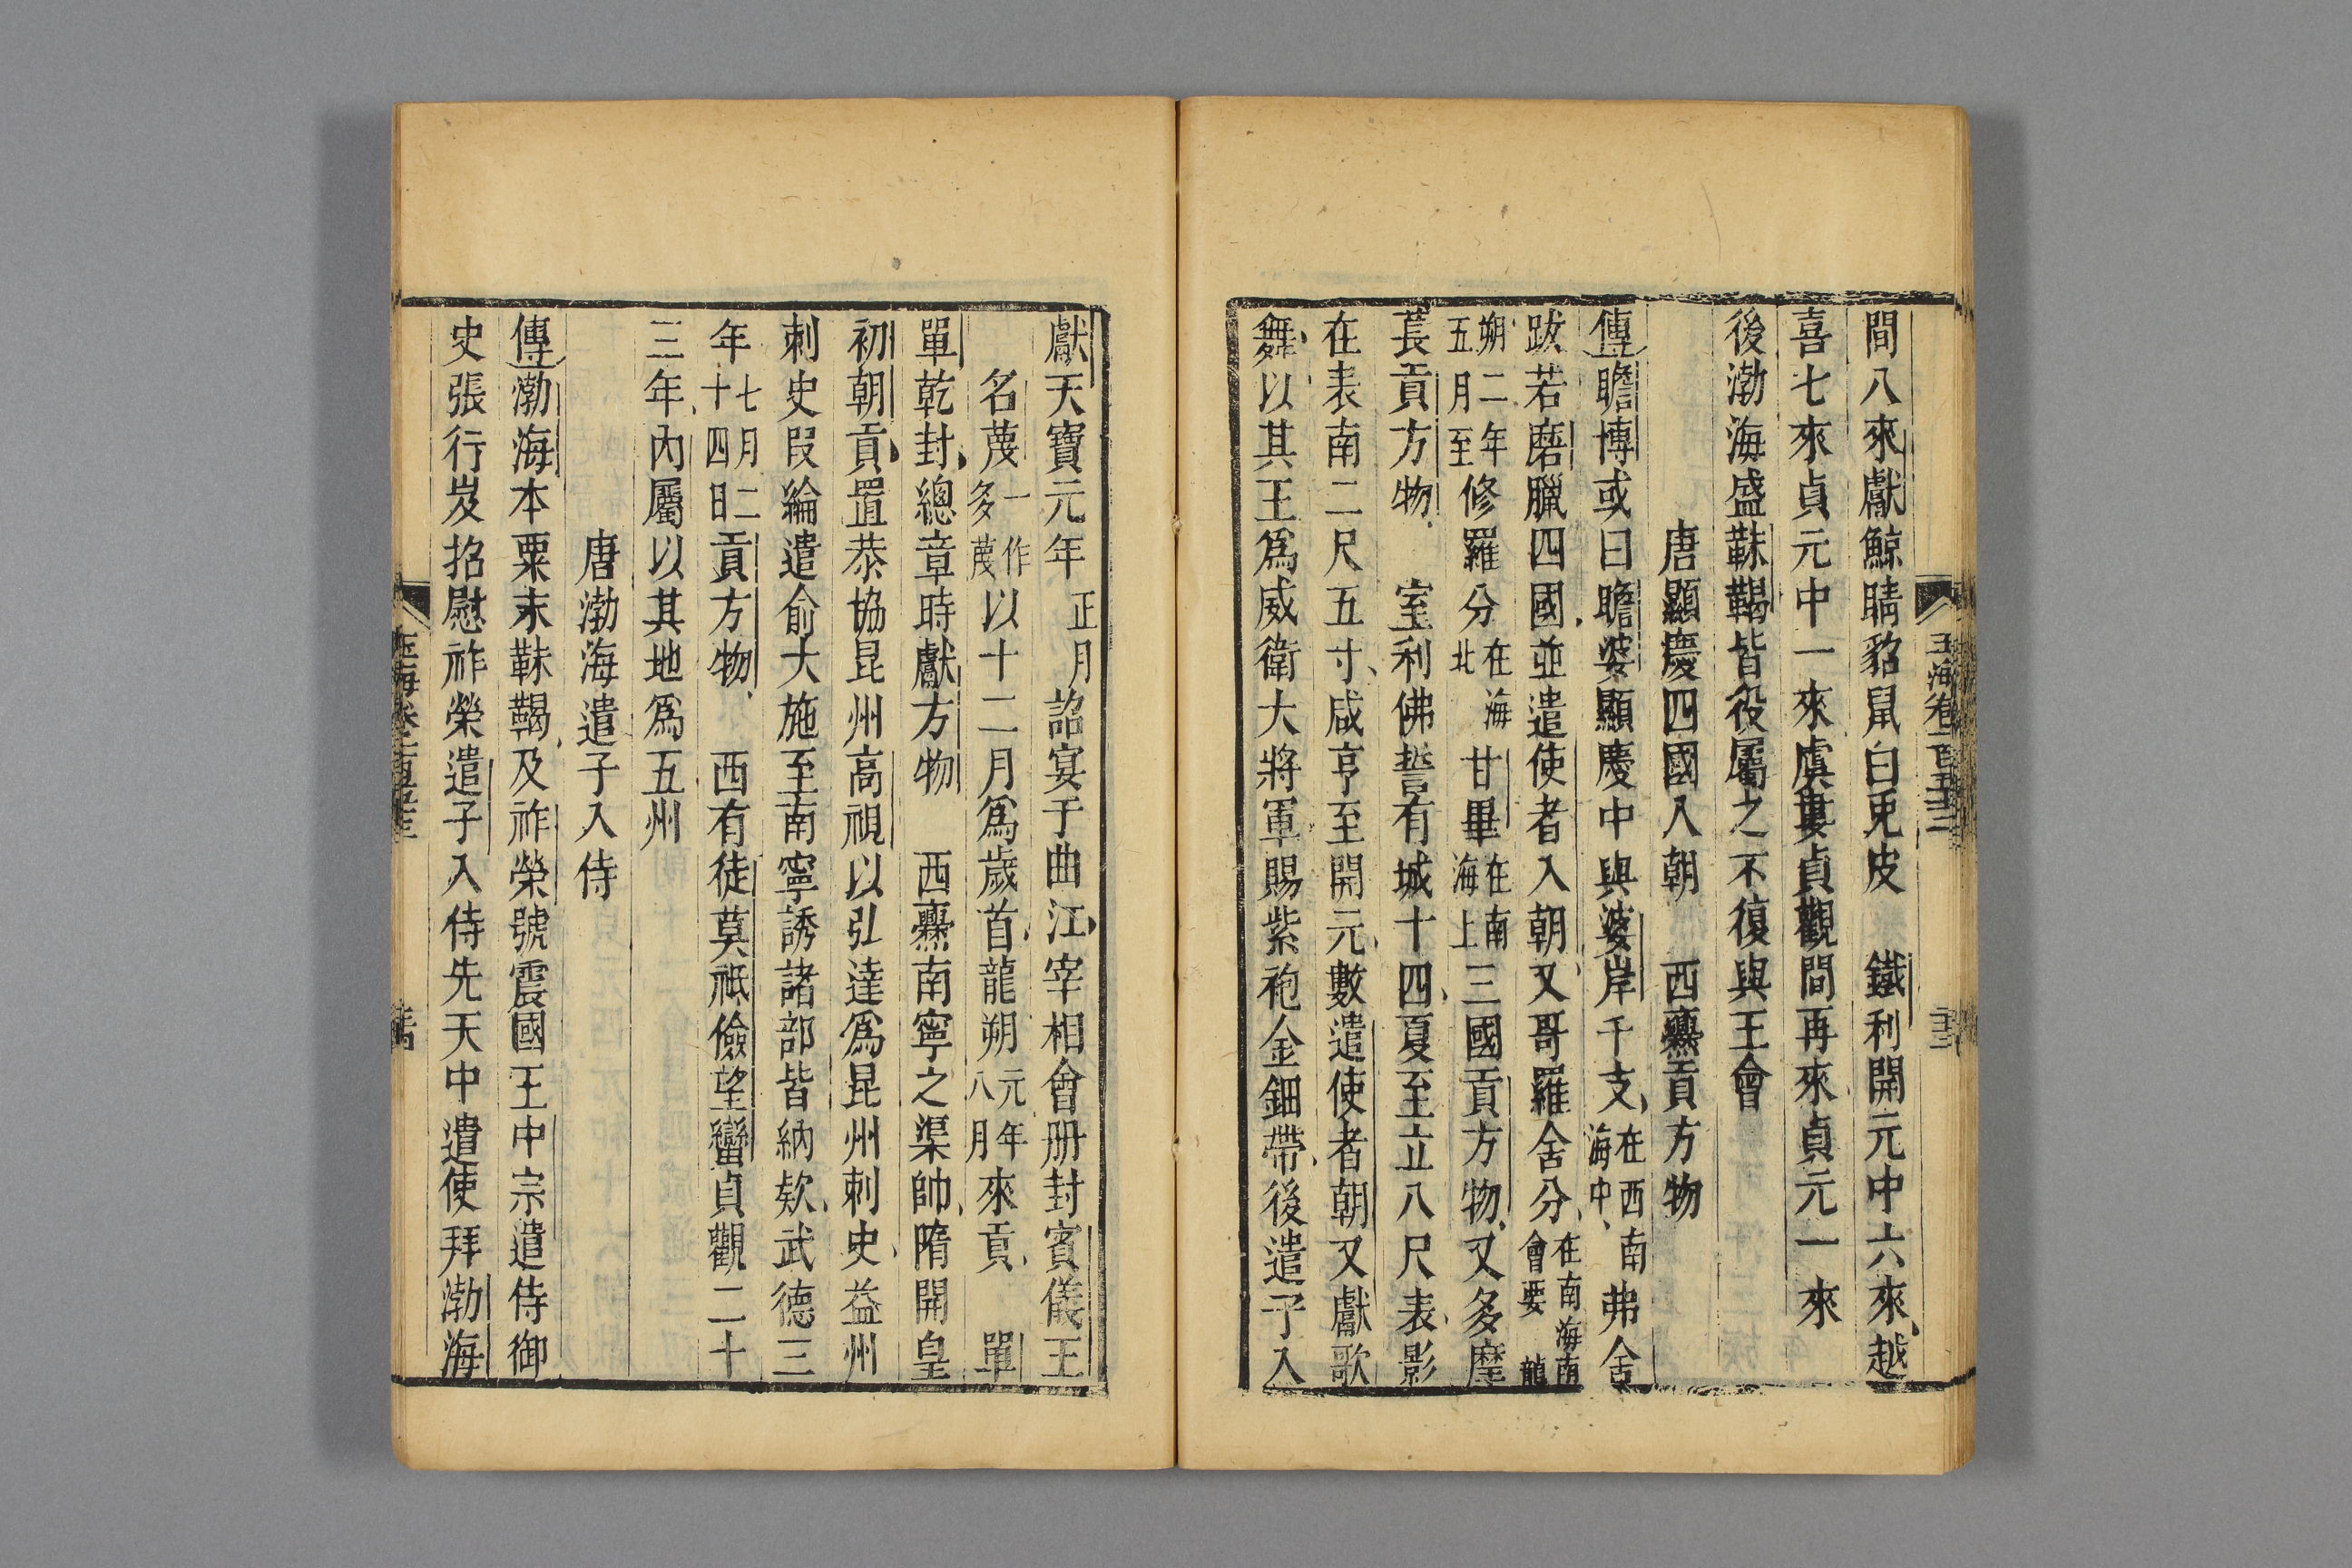 間八來獻鯨睛貂鼠白兎皮　鐵利開元中六來越
喜七來貞元中一來虞婁貞觀間再來貞元一來
後渤海盛靺鞨皆役屬之不復與王會
唐顯慶四國入朝　西爨貢方物
傳瞻博或曰瞻婆顯慶中與婆岸千支在西南海中南弗舍
跋若磨臘四國並遣使者入朝又哥羅舍分在南海南會要龍
朔二年五月至修羅分在海北甘畢在南海上三國貢方物又多摩
萇貢方物　室利佛誓有城十四夏至立八尺表影
在表南二尺五寸咸亨至開元數遣使者朝又獻歌
舞以其王爲威衛大將軍賜紫袍金鈿帶後遣子入
玉海卷一百五十三
獻天寶元年正月詔宴于曲江宰相會册封賓儀王
名蔑一作多蔑以十二月爲歲首龍朔元年八月來貢　單
單乾封總章時獻方物　西爨南寧之渠帥隋開皇
初朝貢置恭協昆州高祖以弘達爲昆州刺史益州
刺史段綸遣俞大施至南寧誘諸部皆納欵武德三
年七月二十四日貢方物　西有徒莫祗儉望蠻貞觀二十
三年內屬以其地爲五州
唐渤海遣子入侍
傳渤海本粟末靺鞨及祚榮號震國王中宗遣侍御
史張行岌招慰祚榮遣子入侍先天中遣使拜渤海